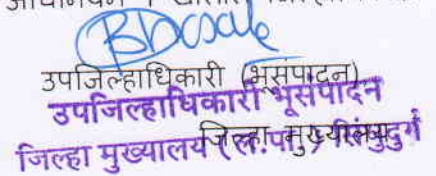 उपजिल्हाधिकारी (भूसंपादन)
उपजिल्हाधिकारी भूसंपादन
जिल्हा मुख्यालय
जिल्हा मुख्यालय (ल.पा.) सिंधुदुर्ग